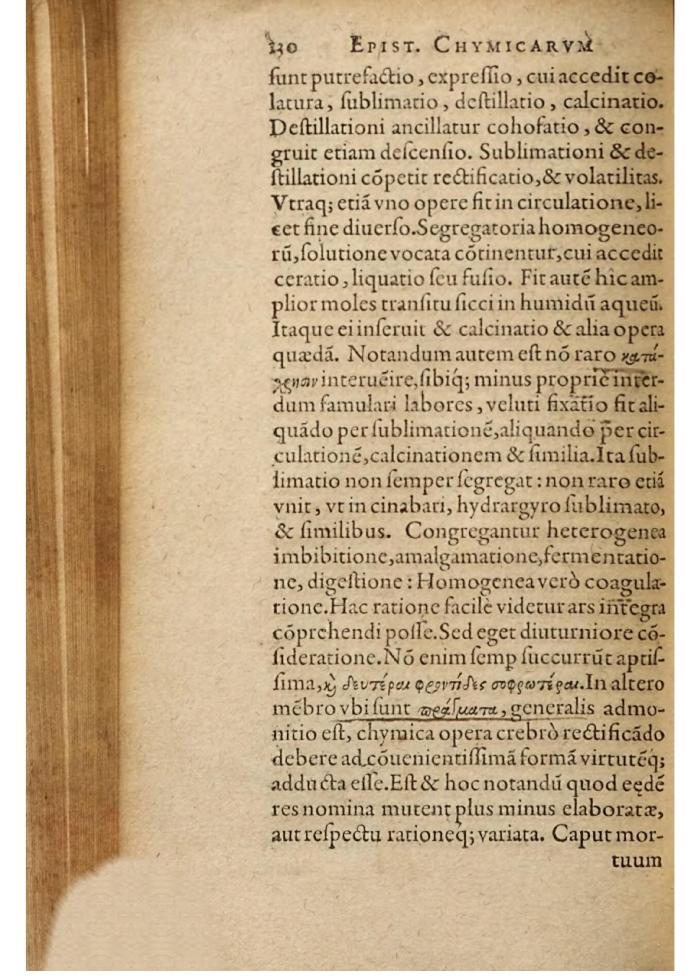 130 EPIST. CHYMICARVM
ſunt putrefactio, expreſſio, cui accedit co-
latura, ſublimatio, deſtillatio, calcinatio.
Deſtillationi ancillatur cohofatio, & con-
gruit etiam deſcenſio. Sublimationi & de-
ſtillationi cōpetit rectificatio, & volatilitas.
Vtraq; etiā vno opere fit in circulatione, li-
cet fine diuerſo. Segregatoria homogeneo-
rū, ſolutione vocata cōtinentur, cui accedit
ceratio, liquatio ſeu fuſio. Fit autē hic am-
plior moles tranſitu ſicci in humidū aqueū.
Itaque ei inſeruit & calcinatio & alia opera
quædā. Notandum autem eſt nō raro κατά-
χρησιν interuēire, ſibiq; minus propriè inter-
dum famulari labores, veluti fixatio fit ali-
quādo per ſublimationē, aliquando per cir-
culationē, calcinationem & ſimilia. Ita ſub-
limatio non ſemper ſegregat : non raro etiā
vnit, vt in cinabari, hydrargyro ſublimato,
& ſimilibus. Congregantur heterogenea
imbibitione, amalgamatione, fermentatio-
ne, digeſtione : Homogenea verò coagula-
tione. Hac ratione facilè videtur ars integra
cōprehendi poſſe. Sed eget diuturniore cō-
ſideratione. Nō enim ſemp ſuccurrūt aptiſ-
ſima, ϗ δευτέραι φροντίδες σοφωτέραι. In altero
mēbro vbi ſunt πράγματα, generalis admo-
nitio eſt, chymica opera crebrò rectificādo
debere ad cōuenientiſſimā formā virtutēq;
adducta eſſe. Eſt & hoc notandū quod eędē
res nomina mutent plus minus elaboratæ,
aut reſpectu rationeq; variata. Caput mor-
tuum